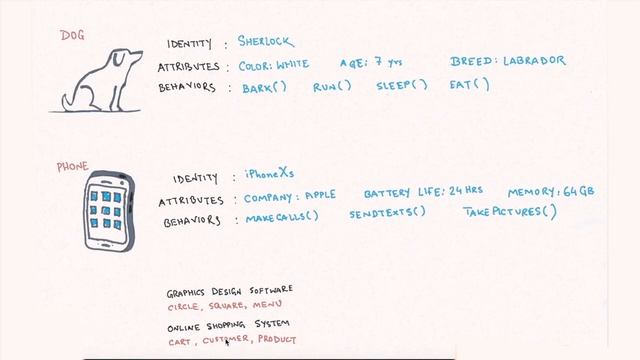 DOG
IDENTITY : SHERLOCK
ATTRIBUTES : COLOR: WHITE AGE: 7 yrs BREED: LABRADOR
BEHAVIORS : BARK() RUN() SLEEP() EAT()
PHONE
IDENTITY : iPhone Xs
ATTRIBUTES : COMPANY: APPLE BATTERY LIFE: 24 HRS MEMORY: 64 GB
BEHAVIORS : MAKECALLS() SENDTEXTS() TAKEPICTURES()
GRAPHICS DESIGN SOFTWARE
CIRCLE, SQUARE, MENU
ONLINE SHOPPING SYSTEM
CART, CUSTOMER, PRODUCT